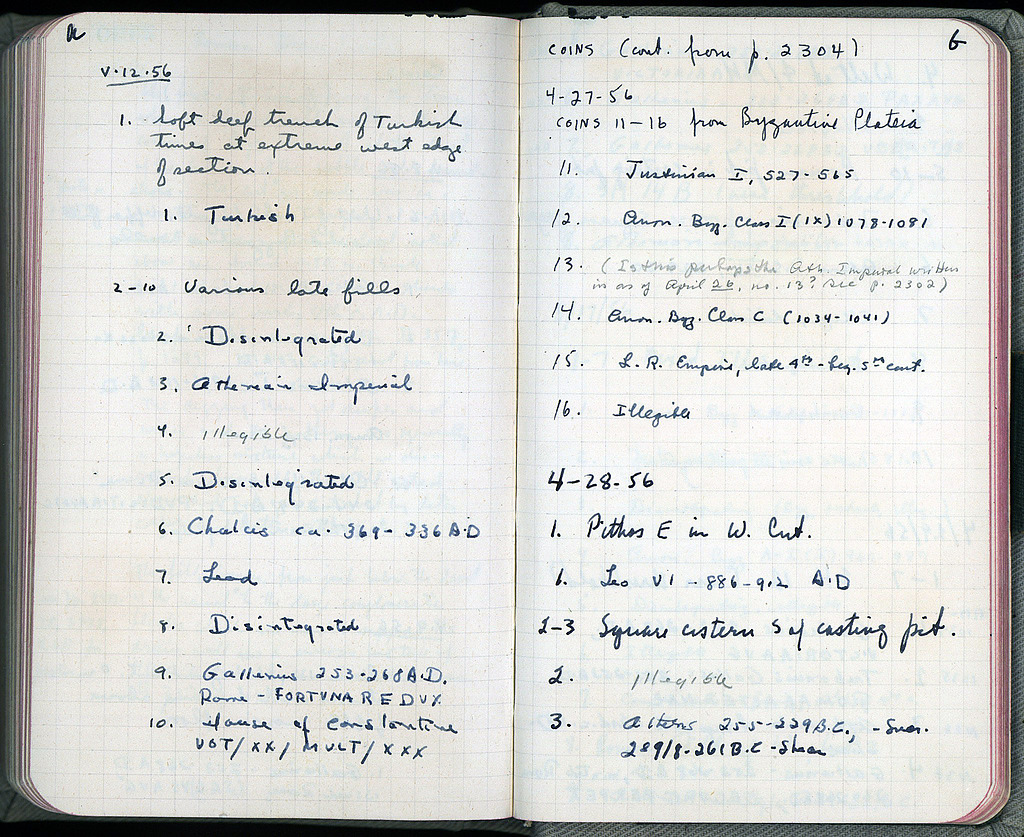 a
V·12·56
1. Loft deep trench of Turkish
times at extreme west edge
of section.
1. Turkish
2-10 Various late fills
2. Disintegrated
3. Athenian Imperial
4. illegible
5. Disintegrated
6. Chalcis ca. 369-336 A.D
7. Lead
8. Disintegrated
9. Gallienus 253-268 A.D.
Rome - FORTUNA REDUX
10. House of Constantine
VOT/XX/MULT/XXX
b
COINS (cont. from p. 2304)
4-27-56
COINS 11-16 from Byzantine Plateia
11. Justinian I, 527-565
12. Anon. Byz. Class I (IX) 1078-1081
13. (Is this perhaps the Ath. Imperial written
in as of April 26, no. 13? See p. 2302)
14. Anon. Byz. Class C (1034-1041)
15. L. R. Empire, late 4th - beg. 5th cent.
16. Illegible
4-28-56
1. Pithos E in W. Cut.
1. Leo VI - 886-912 A.D
2-3 Square cistern S of casting pit.
2. illegible
3. Athens 255-229 B.C., - Svor.
289/8-261 B.C - Shear